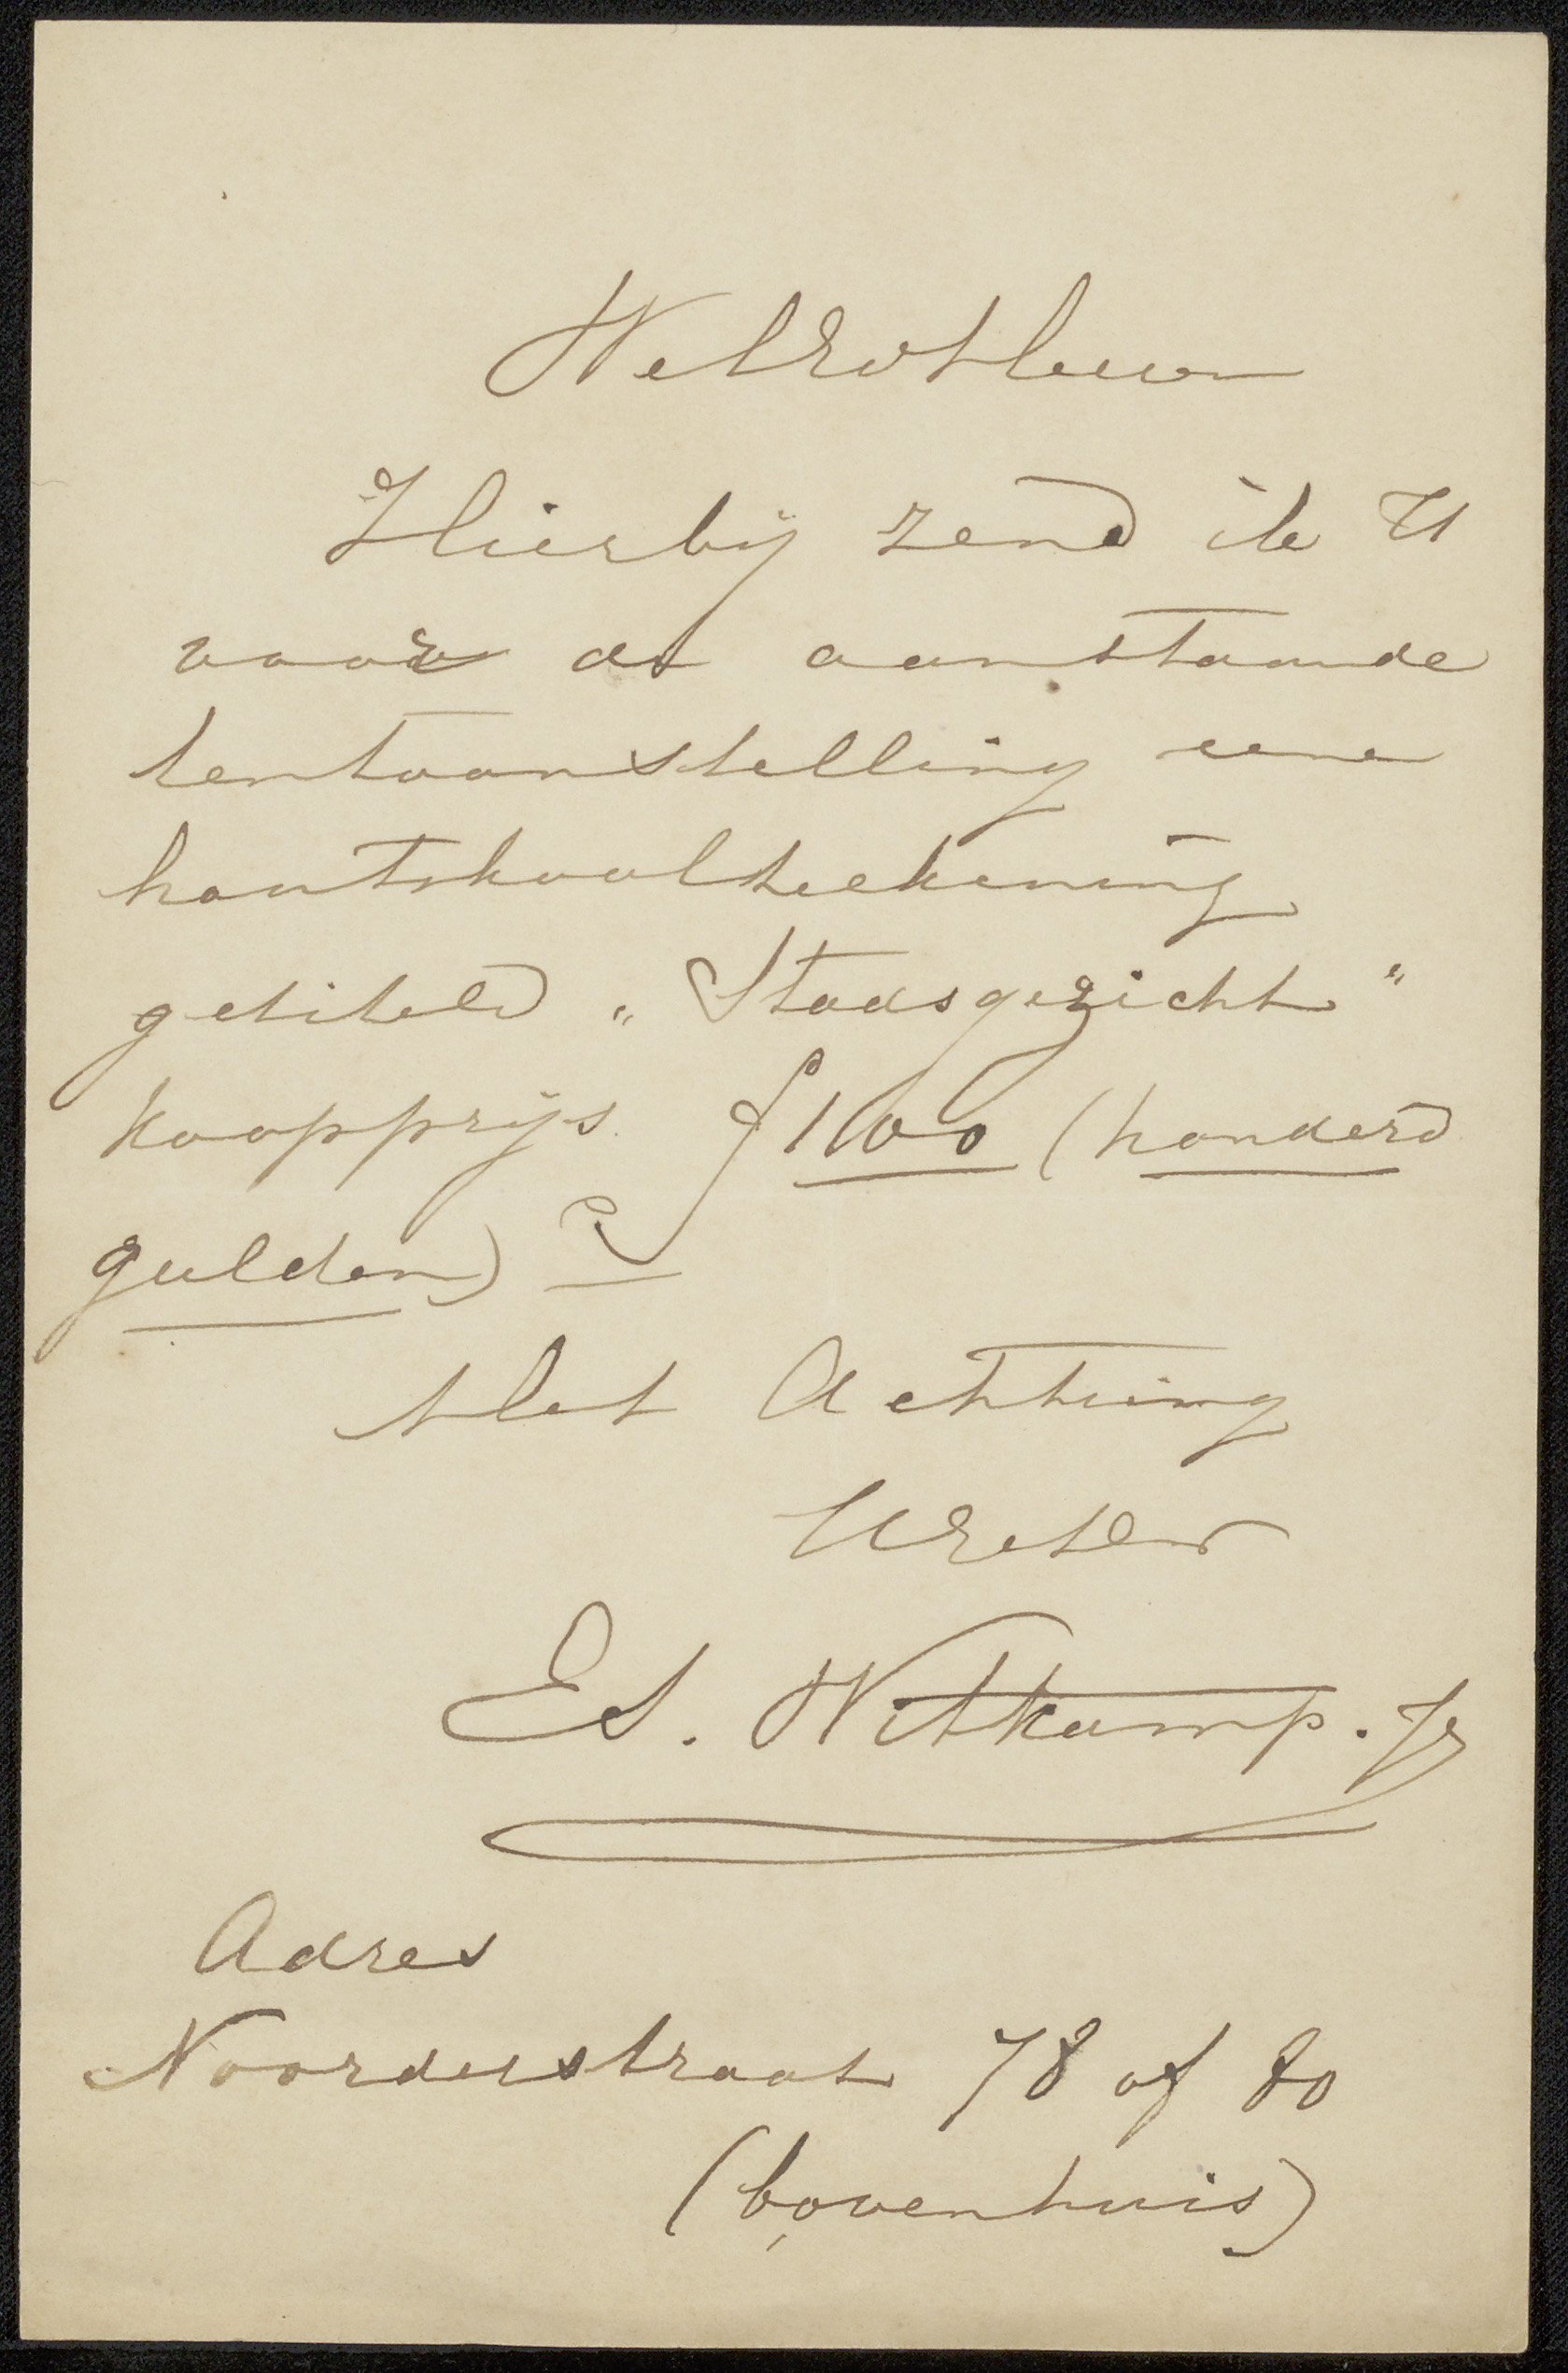 WelEdHeer
Hierbij zend ik U
voor de aanstaande
tentoonstelling eene
houtskoolteekening
getiteld „Stadsgezicht"
koopprijs f 100 (honderd
gulden)
Met Achting
UEdDr
Ed. Witkamp. Jr
Adres
Noorderstraat 78 of 80
(bovenhuis)